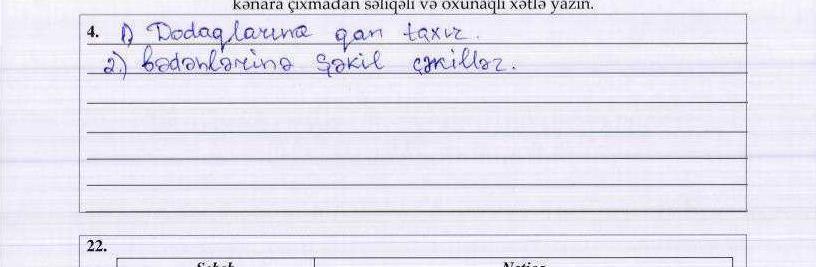 kənara çıxmadan səliqəli və oxunaqlı xətlə yazın.
4. 1) Dodaqlarına qan taxır.
2.) bədənlərinə şəkil çəkillər.
22.
Səbəb Nəticə